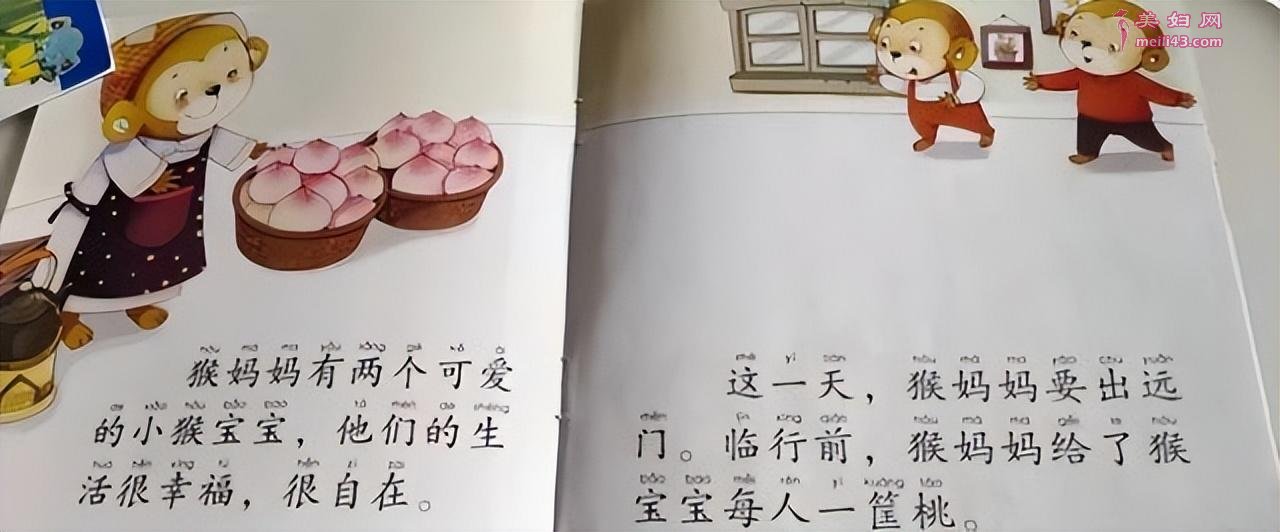 美妇网
meili43.com
猴妈妈有两个可爱
的小猴宝宝，他们的生
活很幸福，很自在。
这一天，猴妈妈要出远
门。临行前，猴妈妈给了猴
宝宝每人一筐桃。